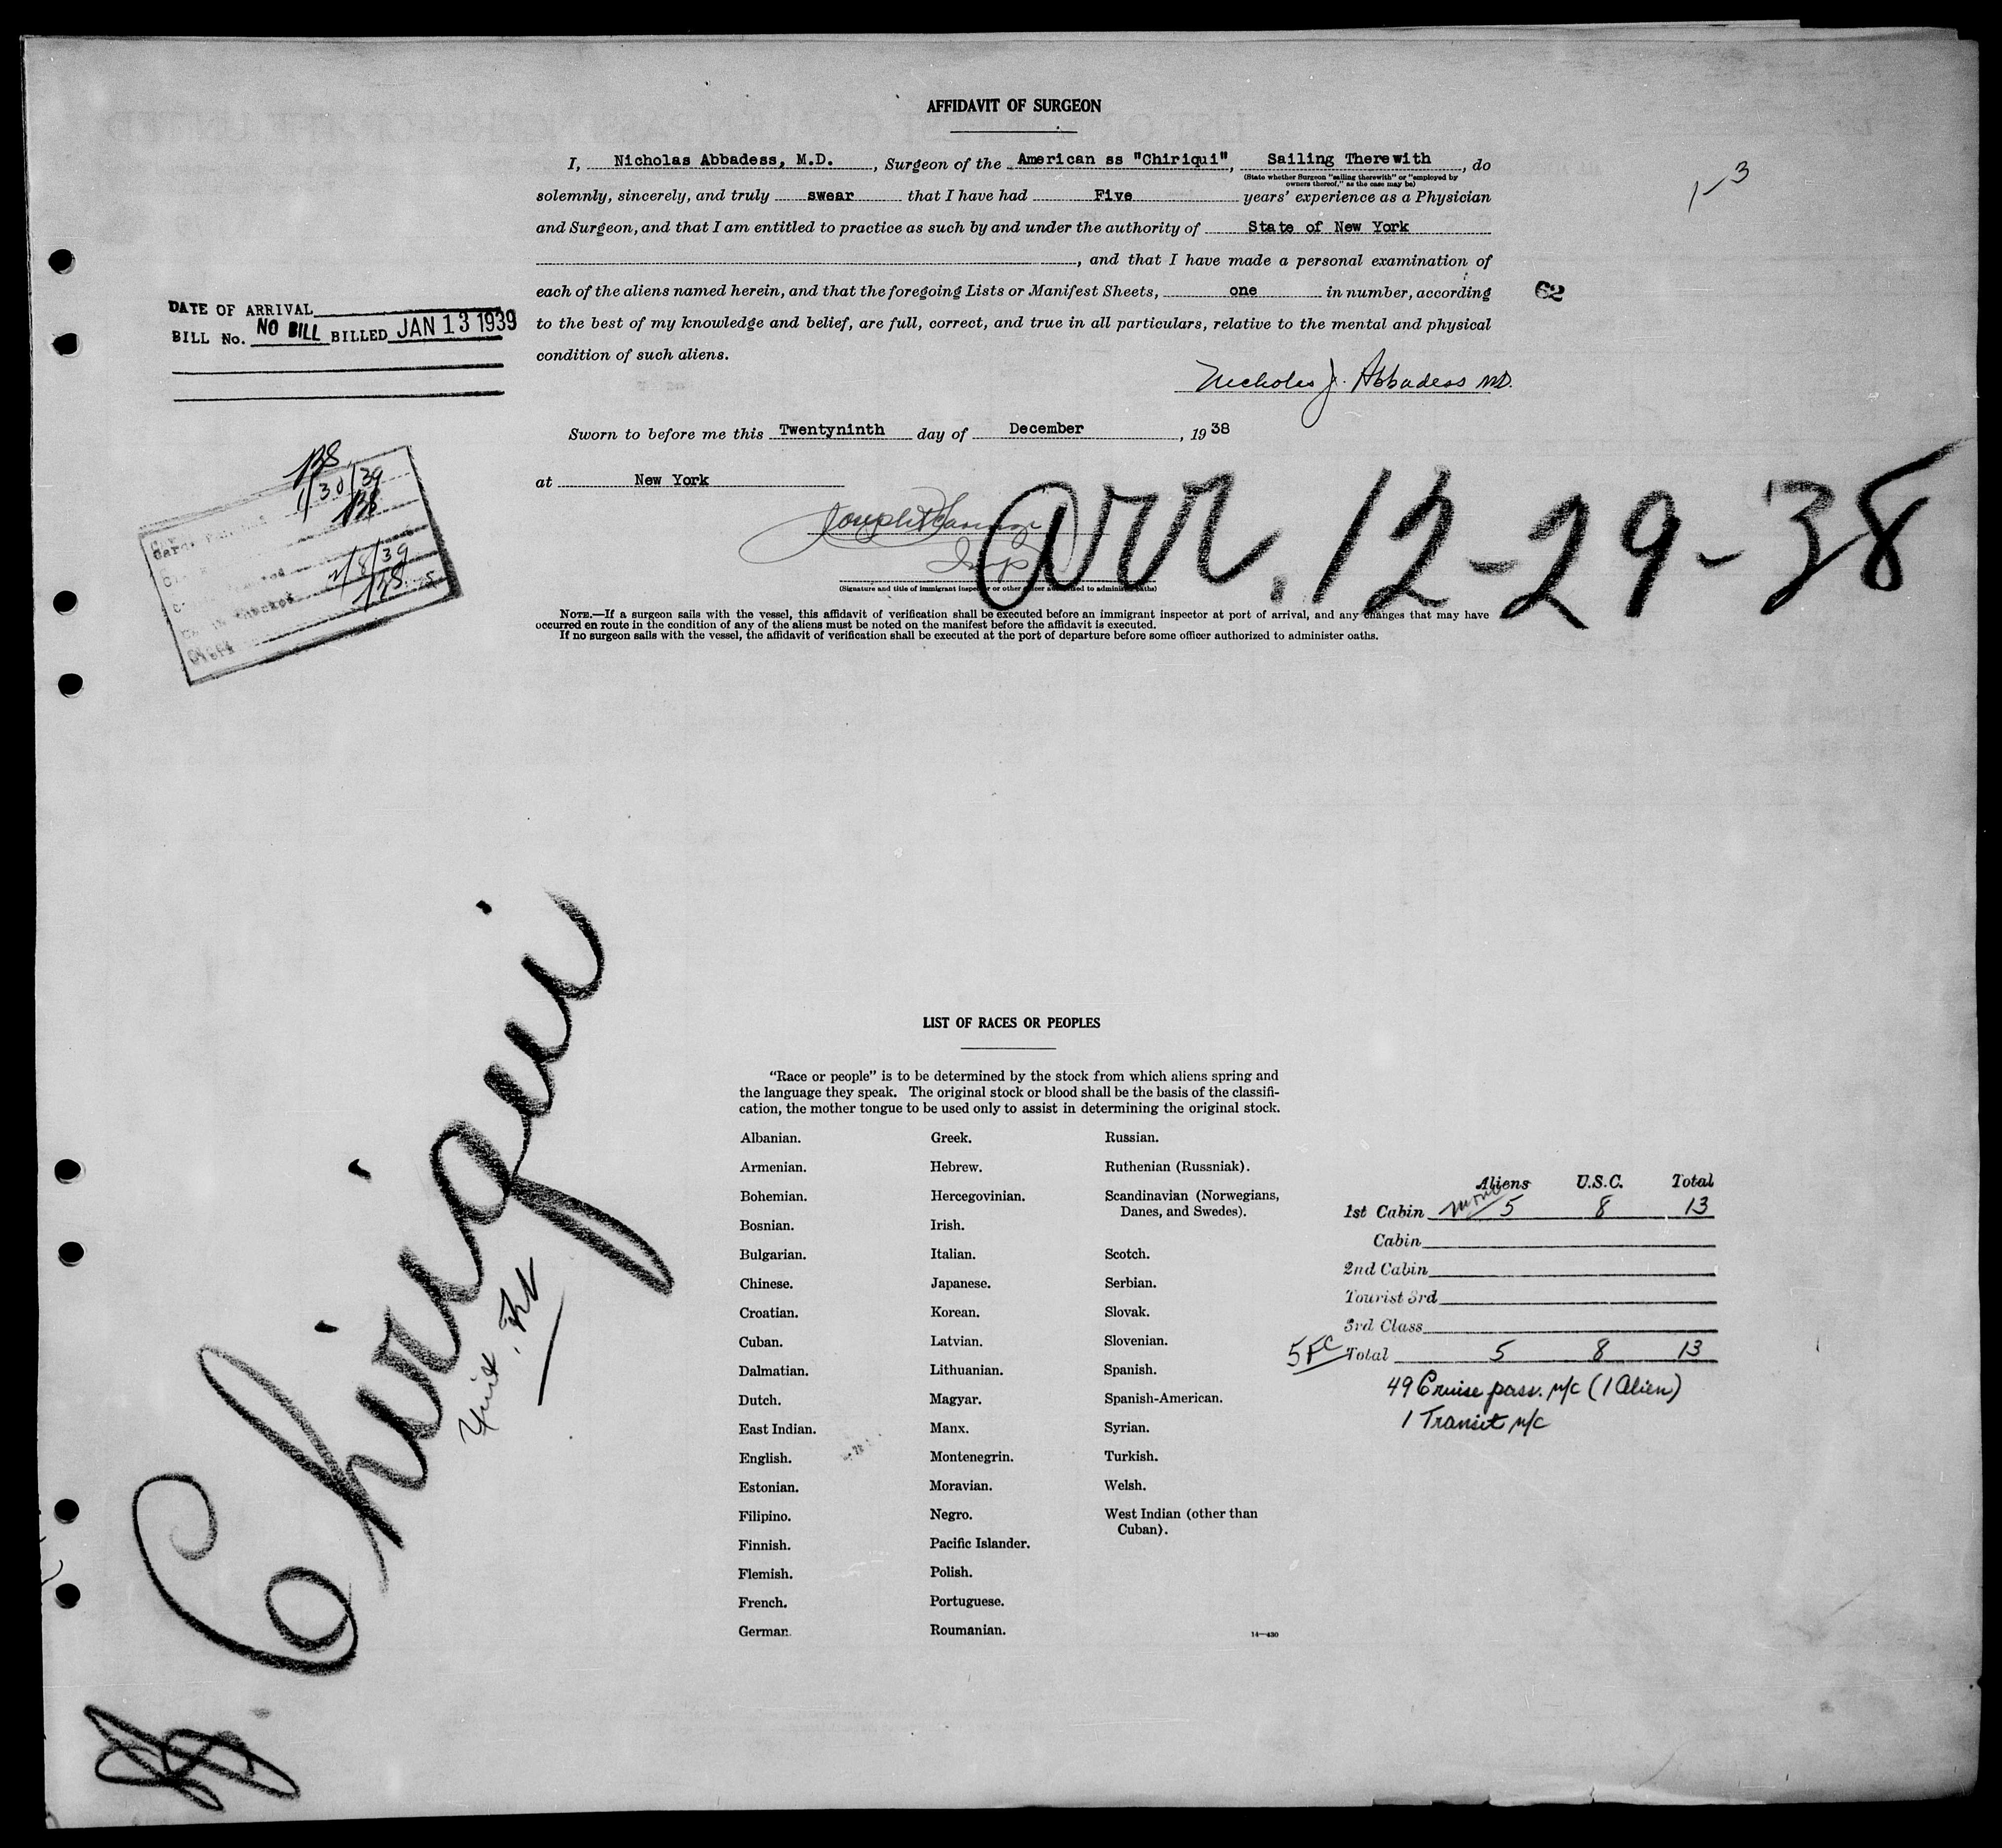 AFFIDAVIT OF SURGEON
I, Nicholas Abbadess, M.D. , Surgeon of the American ss "Chiriqui", Sailing Therewith , do
(State whether Surgeon "sailing therewith" or "employed by
owners thereof," as the case may be)
solemnly, sincerely, and truly swear that I have had Five years' experience as a Physician
and Surgeon, and that I am entitled to practice as such by and under the authority of State of New York
, and that I have made a personal examination of
each of the aliens named herein, and that the foregoing Lists or Manifest Sheets, one in number, according
to the best of my knowledge and belief, are full, correct, and true in all particulars, relative to the mental and physical
condition of such aliens.
Nicholas J. Abbadess M.D.
1-3
62
DATE OF ARRIVAL
BILL No. NO BILL BILLED JAN 13 1939
Sworn to before me this Twentyninth day of December , 19 38
at New York
Insp
(Signature and title of immigrant inspector or other officer authorized to administer oaths)
Arr. 12-29-38
1/30/39
2/8/39
NOTE.—If a surgeon sails with the vessel, this affidavit of verification shall be executed before an immigrant inspector at port of arrival, and any changes that may have
occurred en route in the condition of any of the aliens must be noted on the manifest before the affidavit is executed.
If no surgeon sails with the vessel, the affidavit of verification shall be executed at the port of departure before some officer authorized to administer oaths.
Chiriqui
LIST OF RACES OR PEOPLES
"Race or people" is to be determined by the stock from which aliens spring and
the language they speak. The original stock or blood shall be the basis of the classifi-
cation, the mother tongue to be used only to assist in determining the original stock.
Albanian.
Armenian.
Bohemian.
Bosnian.
Bulgarian.
Chinese.
Croatian.
Cuban.
Dalmatian.
Dutch.
East Indian.
English.
Estonian.
Filipino.
Finnish.
Flemish.
French.
German.
Greek.
Hebrew.
Hercegovinian.
Irish.
Italian.
Japanese.
Korean.
Latvian.
Lithuanian.
Magyar.
Manx.
Montenegrin.
Moravian.
Negro.
Pacific Islander.
Polish.
Portuguese.
Roumanian.
Russian.
Ruthenian (Russniak).
Scandinavian (Norwegians,
Danes, and Swedes).
Scotch.
Serbian.
Slovak.
Slovenian.
Spanish.
Spanish-American.
Syrian.
Turkish.
Welsh.
West Indian (other than
Cuban).
14—430
Aliens U.S.C. Total
1st Cabin 5 8 13
Cabin
2nd Cabin
Tourist 3rd
3rd Class
5 FC Total 5 8 13
49 Cruise pass. n/c (1 Alien)
1 Transit n/c